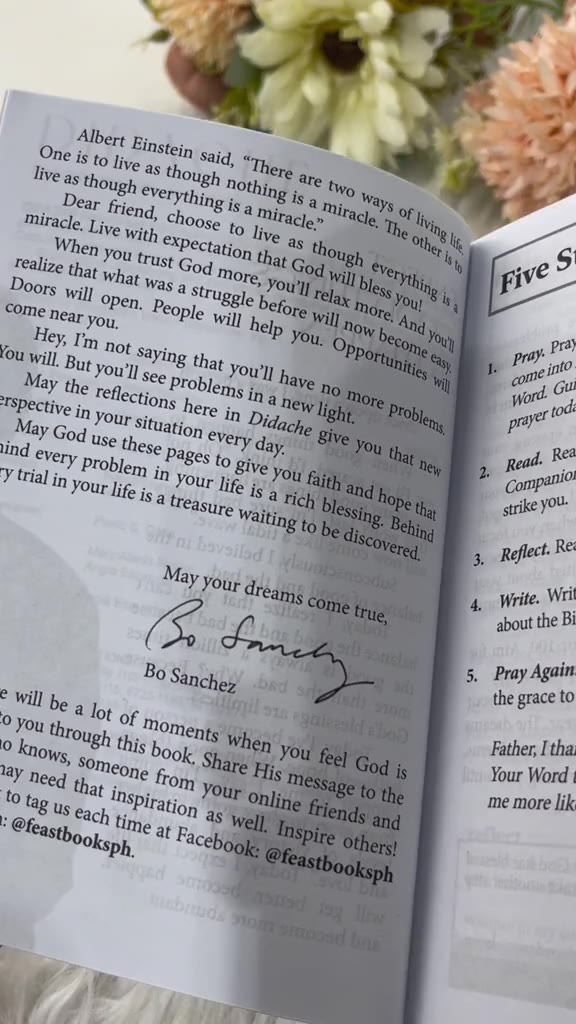 Albert Einstein said, “There are two ways of living life.
One is to live as though nothing is a miracle. The other is to
live as though everything is a miracle.”
Dear friend, choose to live as though everything is a
miracle. Live with expectation that God will bless you!
When you trust God more, you’ll relax more. And you’ll
realize that what was a struggle before will now become easy.
Doors will open. People will help you. Opportunities will
come near you.
Hey, I’m not saying that you’ll have no more problems.
You will. But you’ll see problems in a new light.
May the reflections here in Didache give you that new
erspective in your situation every day.
May God use these pages to give you faith and hope that
hind every problem in your life is a rich blessing. Behind
ry trial in your life is a treasure waiting to be discovered.
May your dreams come true,
Bo Sanchez
Bo Sanchez
e will be a lot of moments when you feel God is
to you through this book. Share His message to the
ho knows, someone from your online friends and
may need that inspiration as well. Inspire others!
to tag us each time at Facebook: @feastbooksph
: @feastbooksph.
Five St
1. Pray. Pray
come into
Word. Gui
prayer toda
2. Read. Rea
Companion
strike you.
3. Reflect. Rea
4. Write. Writ
about the Bi
5. Pray Again.
the grace to
Father, I tha
Your Word
me more like